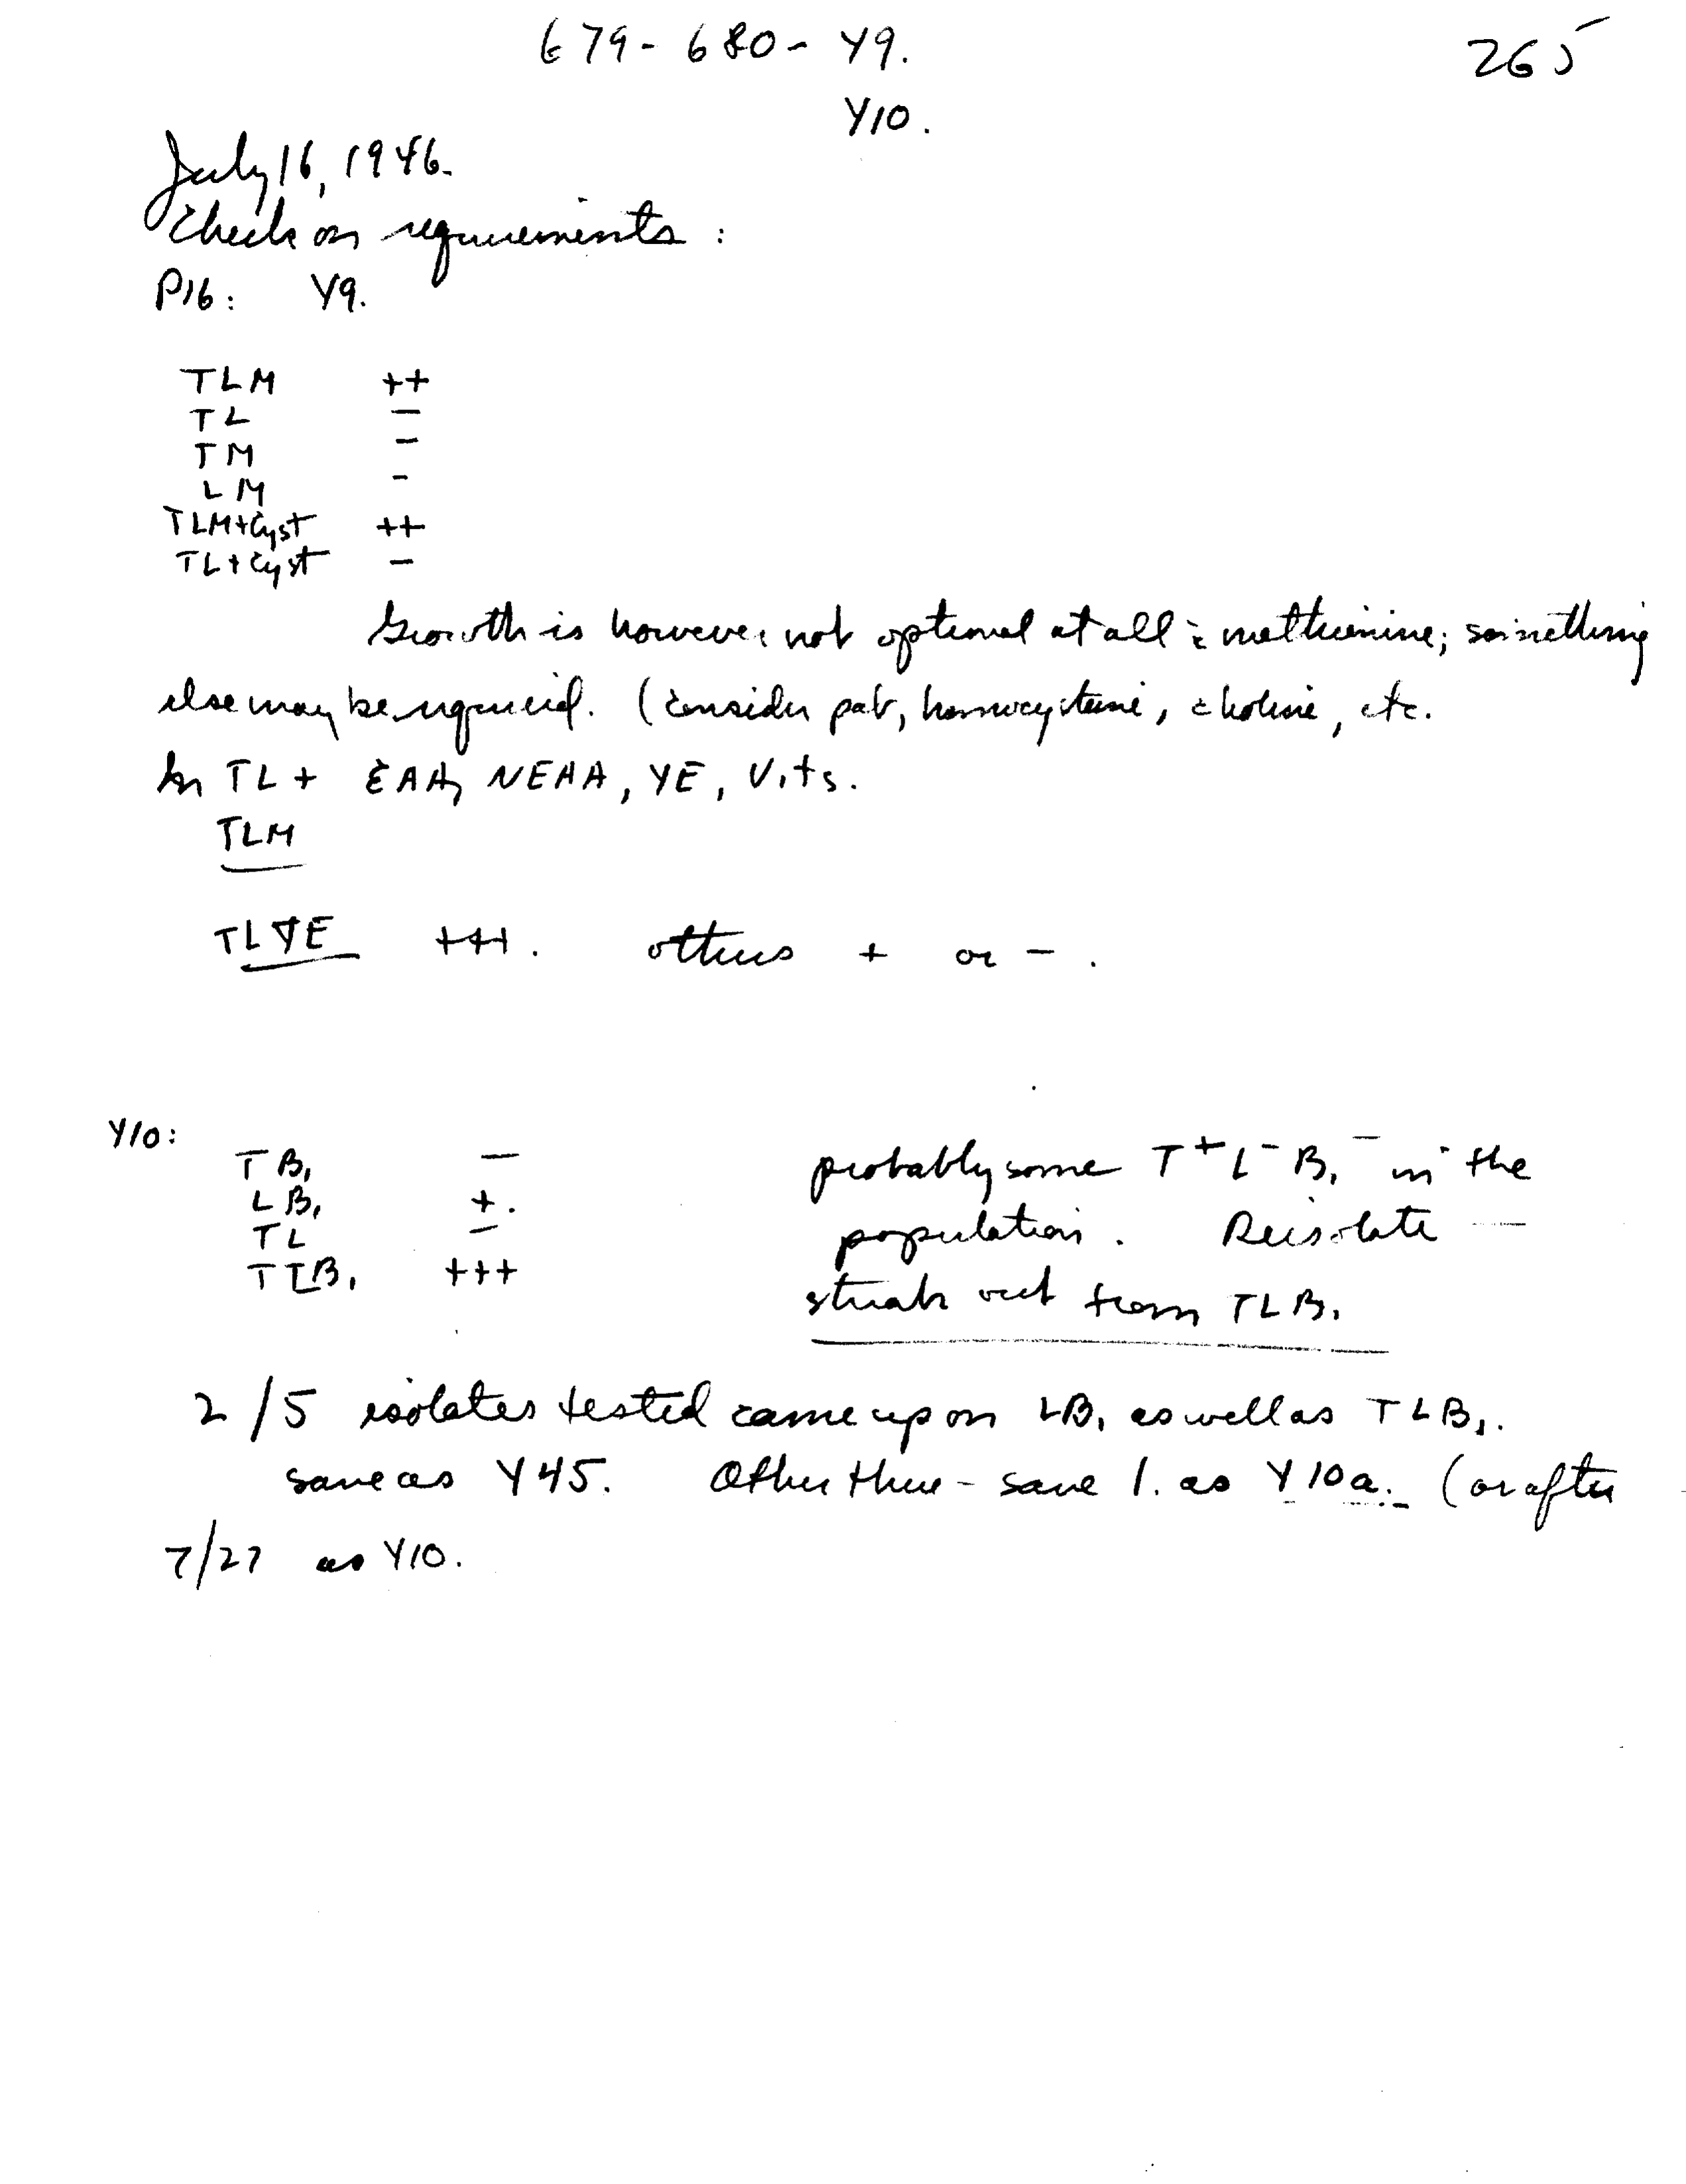 679-680-Y9.
265
Y10.
July 16, 1946.
Check on requirements :
P16: Y9.
TLM ++
TL —
TM —
LM -
TLM+Cyst ++
TL+Cyst —
Growth is however not optimal at all c̄ methionine; something
else may be required. (Consider pab, homocysteine, choline, etc.
In TL + EAA, NEAA, YE, Vits.
TLM
TLYE +++. others + or - .
Y10:
TB₁ —
LB₁ +.
TL —
TLB₁ +++
probably some T⁺L⁻B₁⁻ in the
population. Reisolate
streak out from TLB₁
2/5 isolates tested came up on LB₁ as well as TLB₁.
save as Y45. Other three - save 1. as Y10a. (or after
7/27 as Y10.